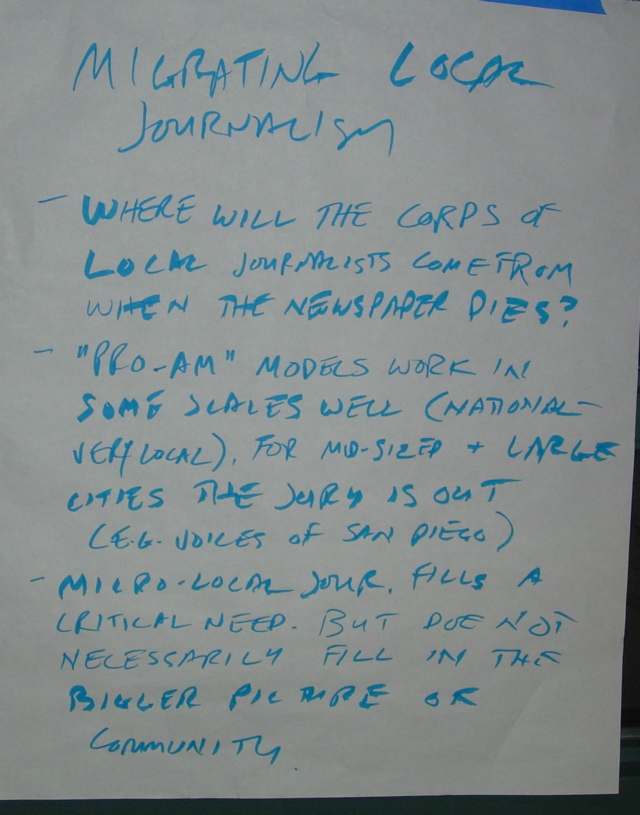 MIGRATING LOCAL
JOURNALISM
- WHERE WILL THE CORPS OF
LOCAL JOURNALISTS COME FROM
WHEN THE NEWSPAPER DIES?
- "PRO-AM" MODELS WORK IN
SOME SCALES WELL (NATIONAL -
VERY LOCAL). FOR MID-SIZED + LARGE
CITIES THE JURY IS OUT
(E.G. VOICES OF SAN DIEGO)
- MICRO-LOCAL JOUR. FILLS A
CRITICAL NEED. BUT DOE NOT
NECESSARILY FILL IN THE
BIGGER PICTURE OF
COMMUNITY